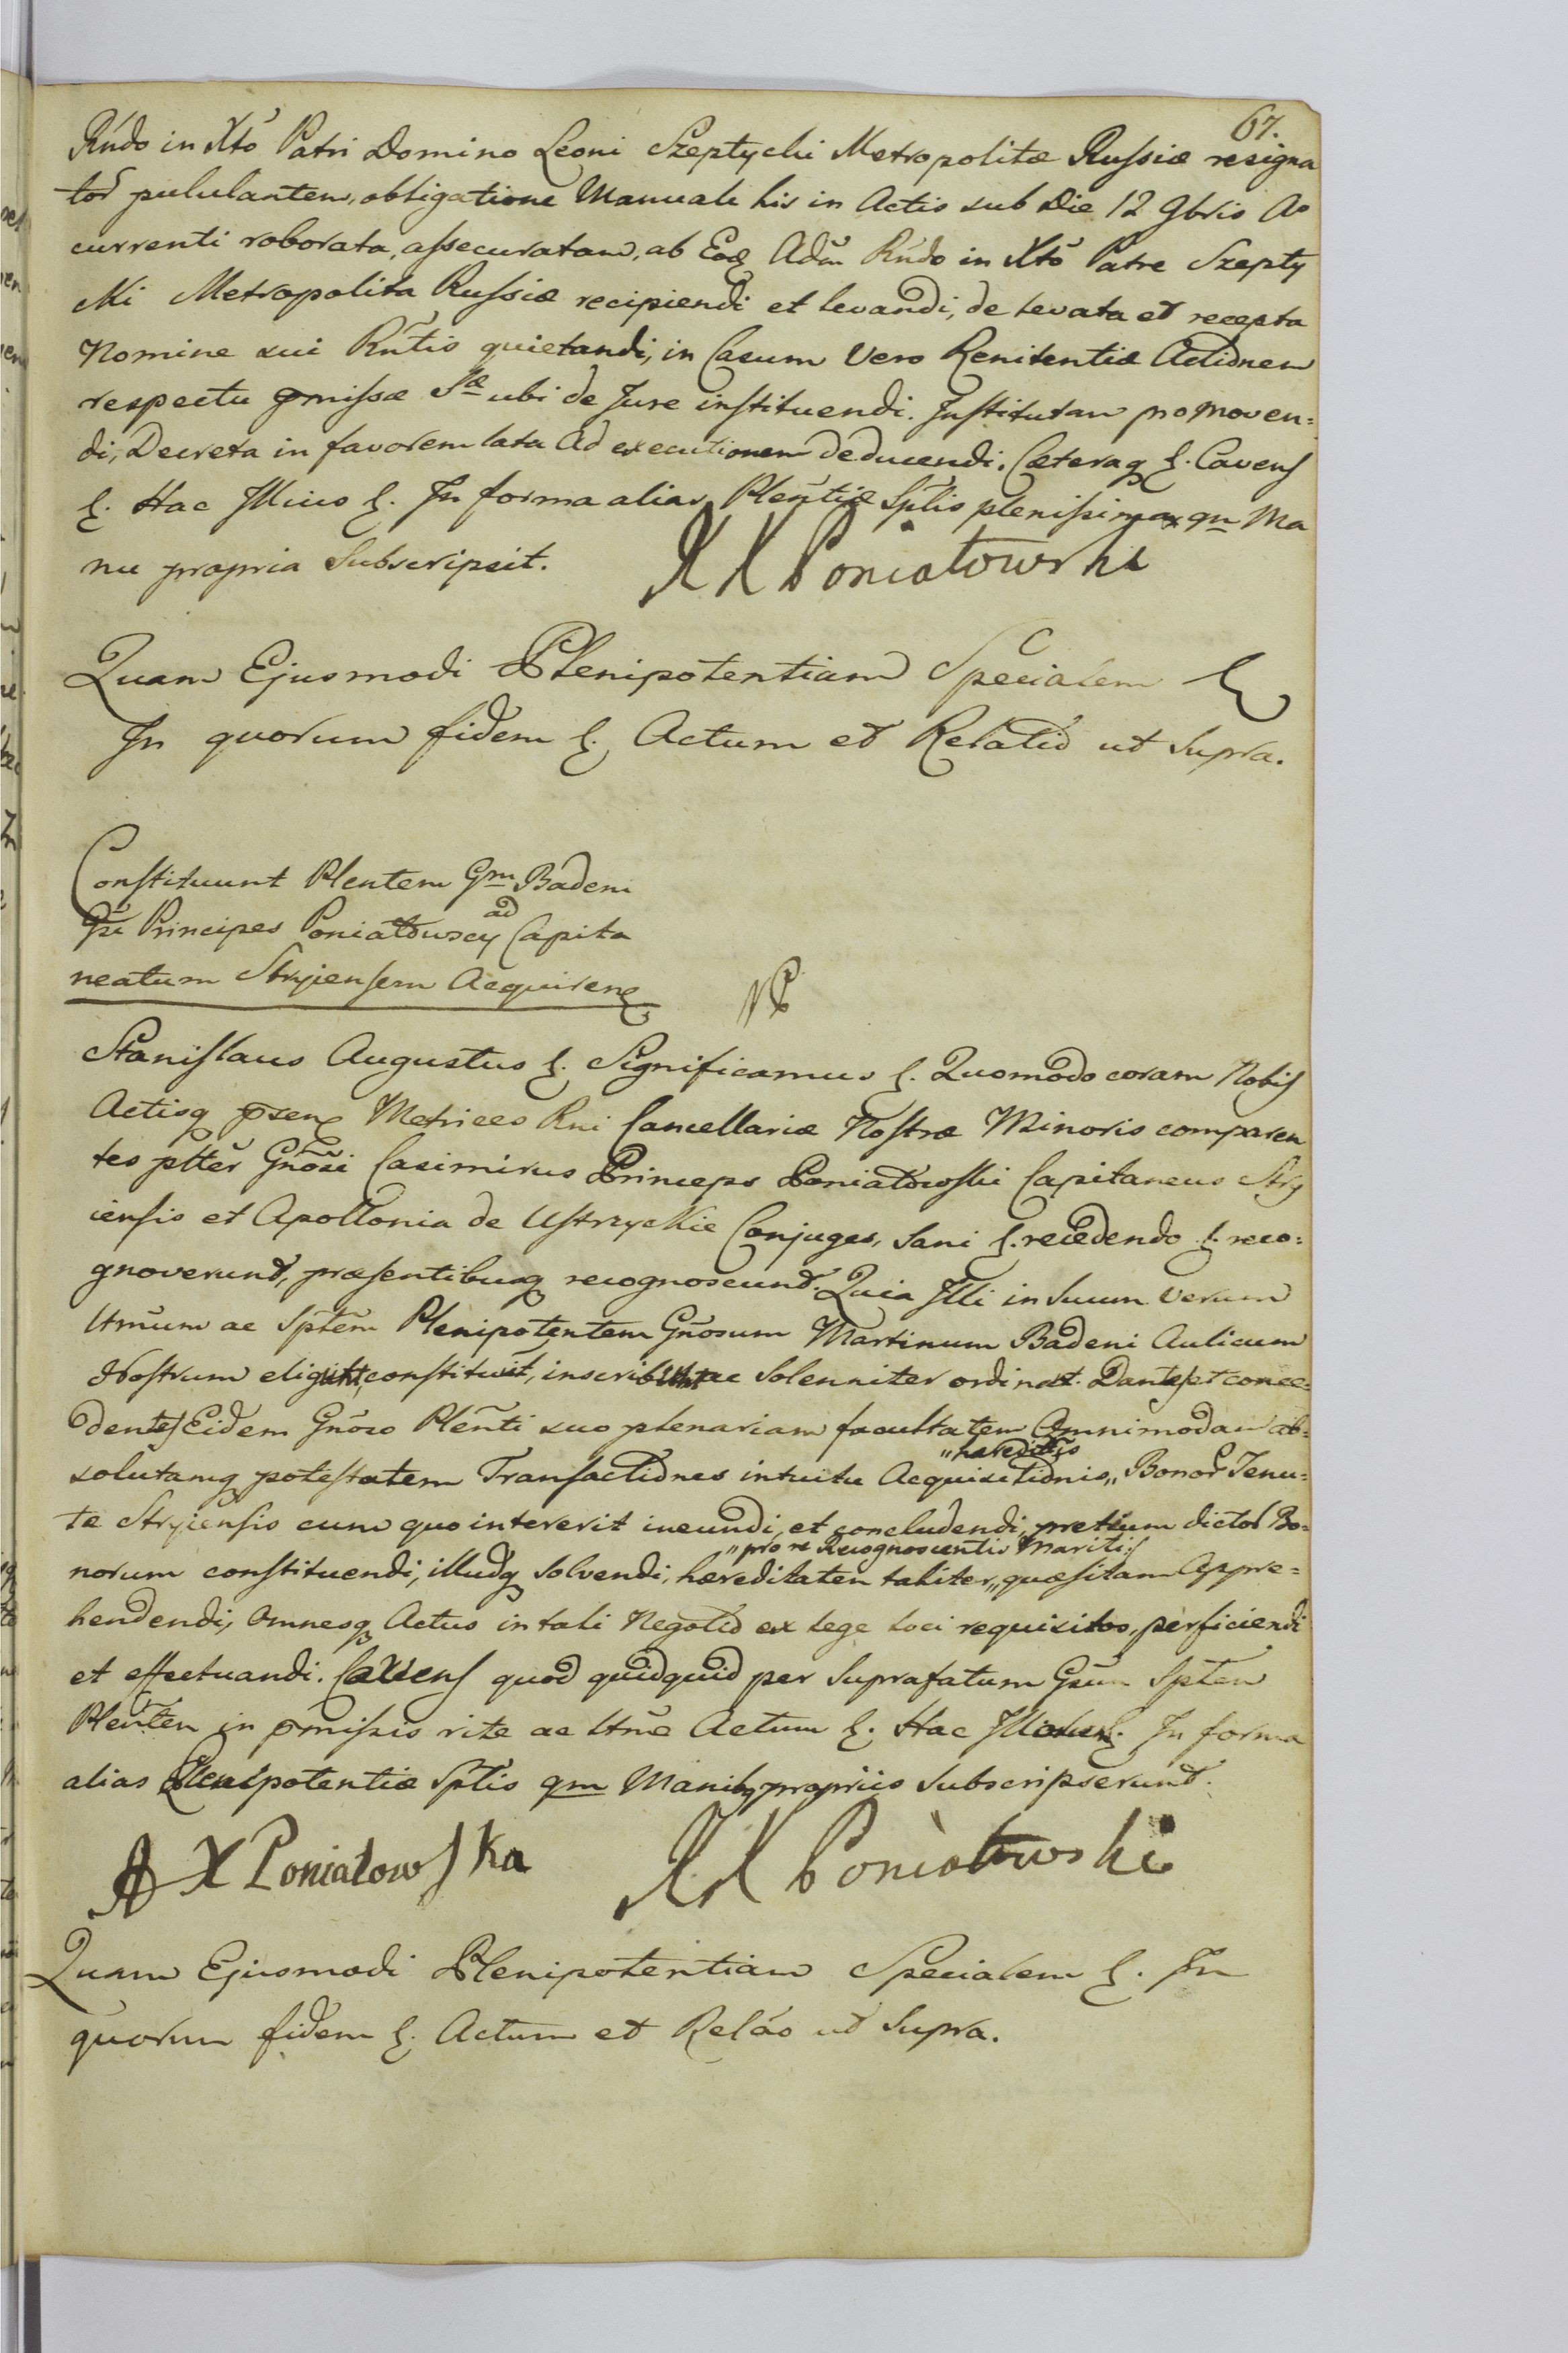 67.
Rńdo in Xtō Patri Domino Leoni Szeptycki Metropolitæ Russiæ resigna
tor pululantem, obligatione Manuali his in Actis sub Die 12 9bris Aº
currenti roborata, assecuratam, ab Eodq Adm̄ Rńdo in Xtō Patre Szepty
cki Metropolita Russiæ recipiendi et levandi, de levata et recepta
Nomine sui Rn̄tis quietandi, in Casum Vero Renitentiæ Actionem
respectu pmissæ Sæ ubi de Jure instituendi. Institutam promoven=
di, Decreta in favorem lata Ad executionem deducendi. Cæteraq &. Cavens
&. Hac Illius &. In forma alias Plen̄tiæ Sp̄lis plenissima, qm Ma
nu propria Subscripsit. X K Poniatowski
Quam Ejusmodi Plenipotentiam Specialem &
In quorum fidem &. Actum et Relatio ut Supra.
Constituunt Plentem Gm Badeni
Gsi Principes Poniatowscy ad Capita
neatum Stryiensem Acquirenq
Stanislaus Augustus &. Significamus &. Quomodo coram Nobis
Actisq psenq Metrices Rni Cancellariæ Nostræ Minoris comparen
tes pltēr Gn̄osi Casimirus Princeps Poniatowski Capitaneus Stry
iensis et Apollonia de Ustrzyckie Conjuges, Sani &. recedendo &. reco=
gnoverunt, præsentibusq recognoscunt. Quia Illi in Suum Verum
Ltm̄um ac Sptēm Plenipotentem Gn̄osum Martinum Badeni Aulicum
Nostrum eligunt, constituit, inscribunt ac Solenniter ordinat. Dantes et conce=
dentes Eidem Gn̄oso Plen̄ti suo plenariam facultatem Omnimodam ab=
solutamq potestatem Transactiones intuitu Acquisitionis „hæreditis „Bonor Tenu=
tæ Stryiensis cum quo intererit ineundi, et concludendi, pretium dictor Bo=
norum constituendi, illudq Solvendi, hæreditatem taliter „pro re Recognoscentis Mariti „quæsitam Appre=
hendendi, Omnesq Actus in tali Negotio ex lege loci requisitos, perficiendi
et effectuandi. Cavens quod quidquid per Suprafatum Gsum Spten
Plen̄ten in pmissis rite ac Ltm̄e Actum &. Hac Illorum &. In forma
alias Plenipotentiæ Sp̄tis qm Manibq propriis Subscripserunt.
A X Poniatowska X K Poniatowski
Quam Ejusmodi Plenipotentiam Specialem &. In
quorum fidem &. Actum et Relāo ut Supra.